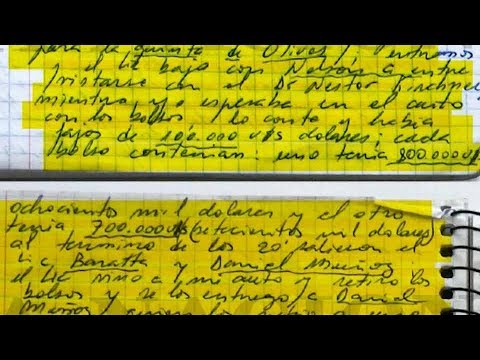 para la quinta de Olivos / entramos
y el Lic bajo con Nelson a entre
vistarse con el Dr Nestor
mientras yo esperaba en el auto
con los bolsos / lo conte y habia
fajos de 100.000 u$s dolares; cada
bolso contenian: uno tenia 800.000 u$s
ochocientos mil dolares y el otro
tenia 700.000 u$s (setecientos mil dolares)
al termino de los 20' salieron el
Lic Baratta y Daniel Muñoz
el Lic vino a mi auto y retiro los
bolsos y se los entrego a Daniel
Muñoz